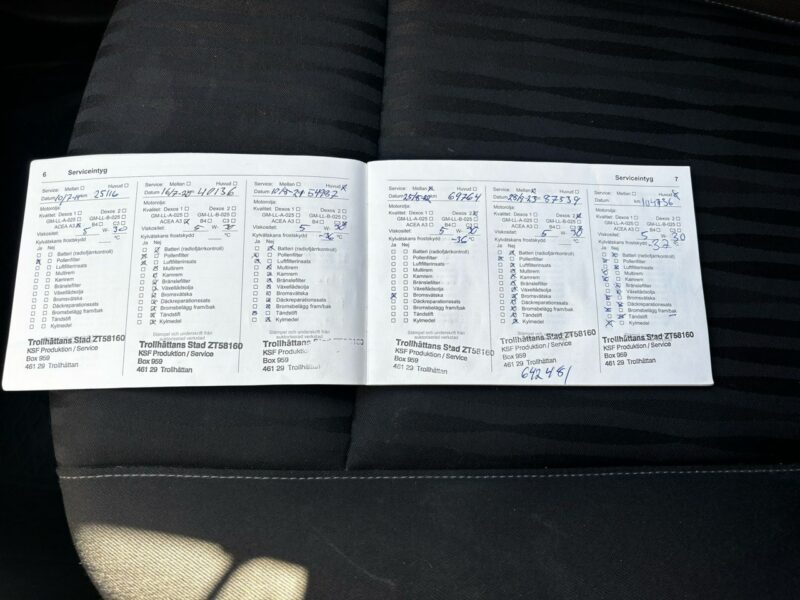 6 Serviceintyg
Service: Mellan ☐ Huvud ☐
Datum km 25116
Motorolja:
Kvalitet: Dexos 1 ☐ Dexos 2 ☐
GM-LL-A-025 ☐ GM-LL-B-025 ☐
ACEA A3 B4 ☐ C3 ☐
Viskositet: 5 W- 30
Kylvätskans frostskydd °C
Ja Nej
Batteri (radiofjärrkontroll)
Pollenfilter
Luftfilterinsats
Multirem
Kamrem
Bränslefilter
Växellådsolja
Bromsvätska
Däckreparationssats
Bromsbelägg fram/bak
Tändstift
Kylmedel
Trollhättans Stad ZT58160
KSF Produktion / Service
Box 959
461 29 Trollhättan
Service: Mellan ☐ Huvud ☐
Datum 40136
Motorolja:
Kvalitet: Dexos 1 ☐ Dexos 2 ☐
GM-LL-A-025 ☐ GM-LL-B-025 ☐
ACEA A3 ☐ B4 ☐ C3
Viskositet: 5 W-
Kylvätskans frostskydd °C
Ja Nej
Batteri (radiofjärrkontroll)
Pollenfilter
Luftfilterinsats
Multirem
Kamrem
Bränslefilter
Växellådsolja
Bromsvätska
Däckreparationssats
Bromsbelägg fram/bak
Tändstift
Kylmedel
Stämpel och underskrift från
auktoriserad verkstad
Trollhättans Stad ZT58160
KSF Produktion / Service
Box 959
461 29 Trollhättan
Service: Mellan ☐ Huvud
Datum
Motorolja:
Kvalitet: Dexos 1 ☐ Dexos 2 ☐
GM-LL-A-025 ☐ GM-LL-B-025 ☐
ACEA A3 ☐ B4 ☐
Viskositet: 5 W-
Kylvätskans frostskydd -36 °C
Ja Nej
Batteri (radiofjärrkontroll)
Pollenfilter
Luftfilterinsats
Multirem
Kamrem
Bränslefilter
Växellådsolja
Bromsvätska
Däckreparationssats
Bromsbelägg fram/bak
Tändstift
Kylmedel
Stämpel och underskrift från
auktoriserad verkstad
Trollhättans
KSF Produktion
Box 959
461 29 Trollhättan
Serviceintyg 7
Service: Mellan Huvud ☐
Datum km 69764
Motorolja:
Kvalitet: Dexos 1 ☐ Dexos 2
GM-LL-A-025 ☐ GM-LL-B-025 ☐
ACEA A3 ☐ B4 ☐
Viskositet: 5 W- 30
Kylvätskans frostskydd -36 °C
Ja Nej
Batteri (radiofjärrkontroll)
Pollenfilter
Luftfilterinsats
Multirem
Kamrem
Bränslefilter
Växellådsolja
Bromsvätska
Däckreparationssats
Bromsbelägg fram/bak
Tändstift
Kylmedel
Stämpel och underskrift från
auktoriserad verkstad
Trollhättans Stad ZT58160
KSF Produktion / Service
Box 959
461 29 Trollhättan
Service: Mellan Huvud ☐
Datum 87539
Motorolja:
Kvalitet: Dexos 1 ☐ Dexos 2
GM-LL-A-025 ☐ GM-LL-B-025 ☐
ACEA A3 ☐ B4 ☐
Viskositet: 5 W- 30
Kylvätskans frostskydd -36 °C
Ja Nej
Batteri (radiofjärrkontroll)
Pollenfilter
Luftfilterinsats
Multirem
Kamrem
Bränslefilter
Växellådsolja
Bromsvätska
Däckreparationssats
Bromsbelägg fram/bak
Tändstift
Kylmedel
Trollhättans Stad ZT58160
KSF Produktion / Service
Box 959
461 29 Trollhättan
642481
Service: Mellan ☐ Huvud
Datum km 104736
Motorolja:
Kvalitet: Dexos 1 ☐ Dexos 2
GM-LL-A-025 ☐ GM-LL-B-025 ☐
ACEA A3 ☐ B4 ☐
Viskositet: 5 W- 30
Kylvätskans frostskydd -32 °C
Ja Nej
Batteri (radiofjärrkontroll)
Pollenfilter
Luftfilterinsats
Multirem
Kamrem
Bränslefilter
Växellådsolja
Bromsvätska
Däckreparationssats
Bromsbelägg fram/bak
Tändstift
Kylmedel
Trollhättans Stad ZT58160
KSF Produktion / Service
Box 959
461 29 Trollhättan